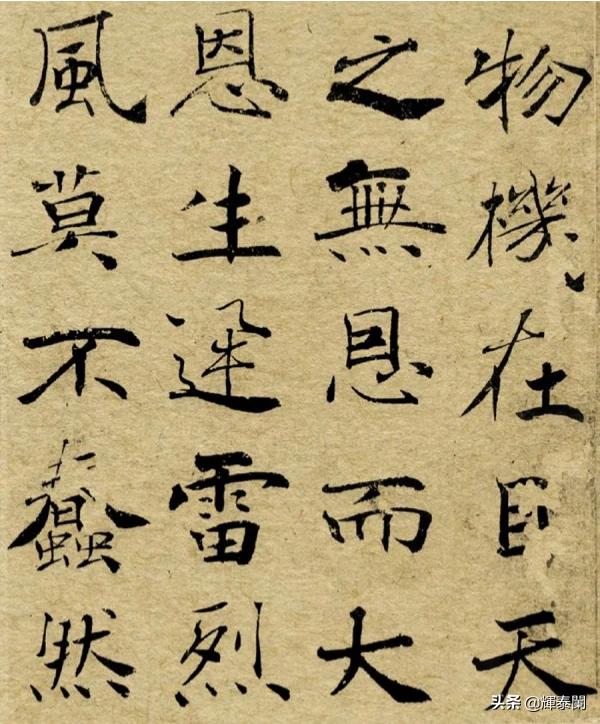 物機在目天
之無恩而大
恩生迅雷烈
風莫不蠢然
头条 @輝泰閣